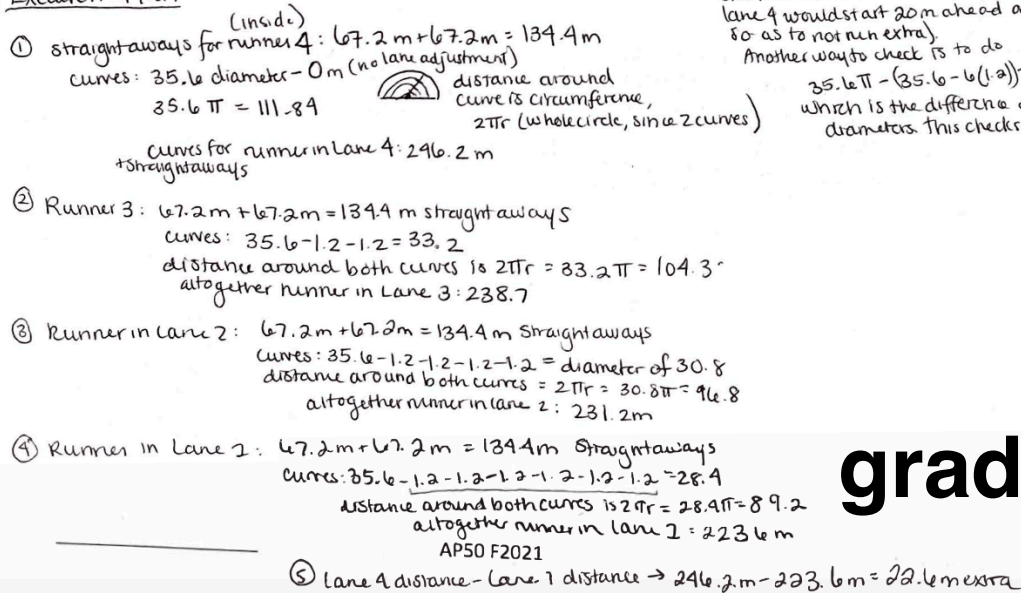 (inside)
① straightaways for runner 4: 67.2 m + 67.2m = 134.4m
curves: 35.6 diameter - 0m (no lane adjustment)
35.6 π = 111.84
distance around
curve is circumference,
2πr (whole circle, since 2 curves)
curves for runner in Lane 4: 246.2 m
+ straightaways
lane 4 would start 20m ahead
so as to not run extra).
Another way to check is to do
35.6π - (35.6 - 6(1.2))
which is the difference
diameters. This checks
② Runner 3: 67.2m + 67.2m = 134.4 m straightaways
curves: 35.6-1.2-1.2 = 33.2
distance around both curves is 2πr = 33.2π = 104.3
altogether runner in Lane 3: 238.7
③ Runner in Lane 2: 67.2m + 67.2m = 134.4 m Straightaways
curves: 35.6-1.2-1.2-1.2-1.2 = diameter of 30.8
distance around both curves = 2πr = 30.8π = 96.8
altogether runner in lane 2: 231.2m
④ Runner in Lane 1: 67.2m + 67.2m = 134.4m Straightaways
curves: 35.6-1.2-1.2-1.2-1.2-1.2-1.2 = 28.4
distance around both curves is 2πr = 28.4π = 89.2
altogether runner in lane 1 : 223.6 m
grad
AP50 F2021
⑤ Lane 4 distance - Lane 1 distance → 246.2m - 223.6m = 22.6m extra